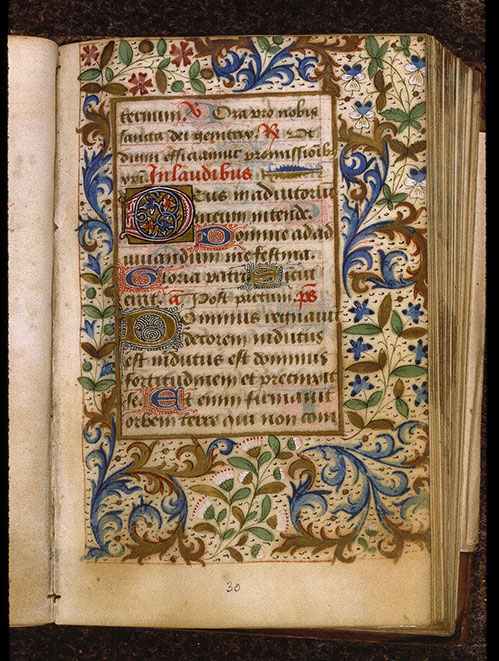 ternum. V Ora pro nobis
sancta dei genitrix. R Ut
digni efficiamur promissionib
xpi. In laudibus
Deus in adiutoriu
meum intende.
Domine ad ad
iuuandum me festina.
Gloria patri Sicut
erat. a Post partum. ps
Dominus regnauit
decorem indutus
est indutus est dominus
fortitudinem et precinxit
se. Et enim firmauit
orbem terre qui non com
30